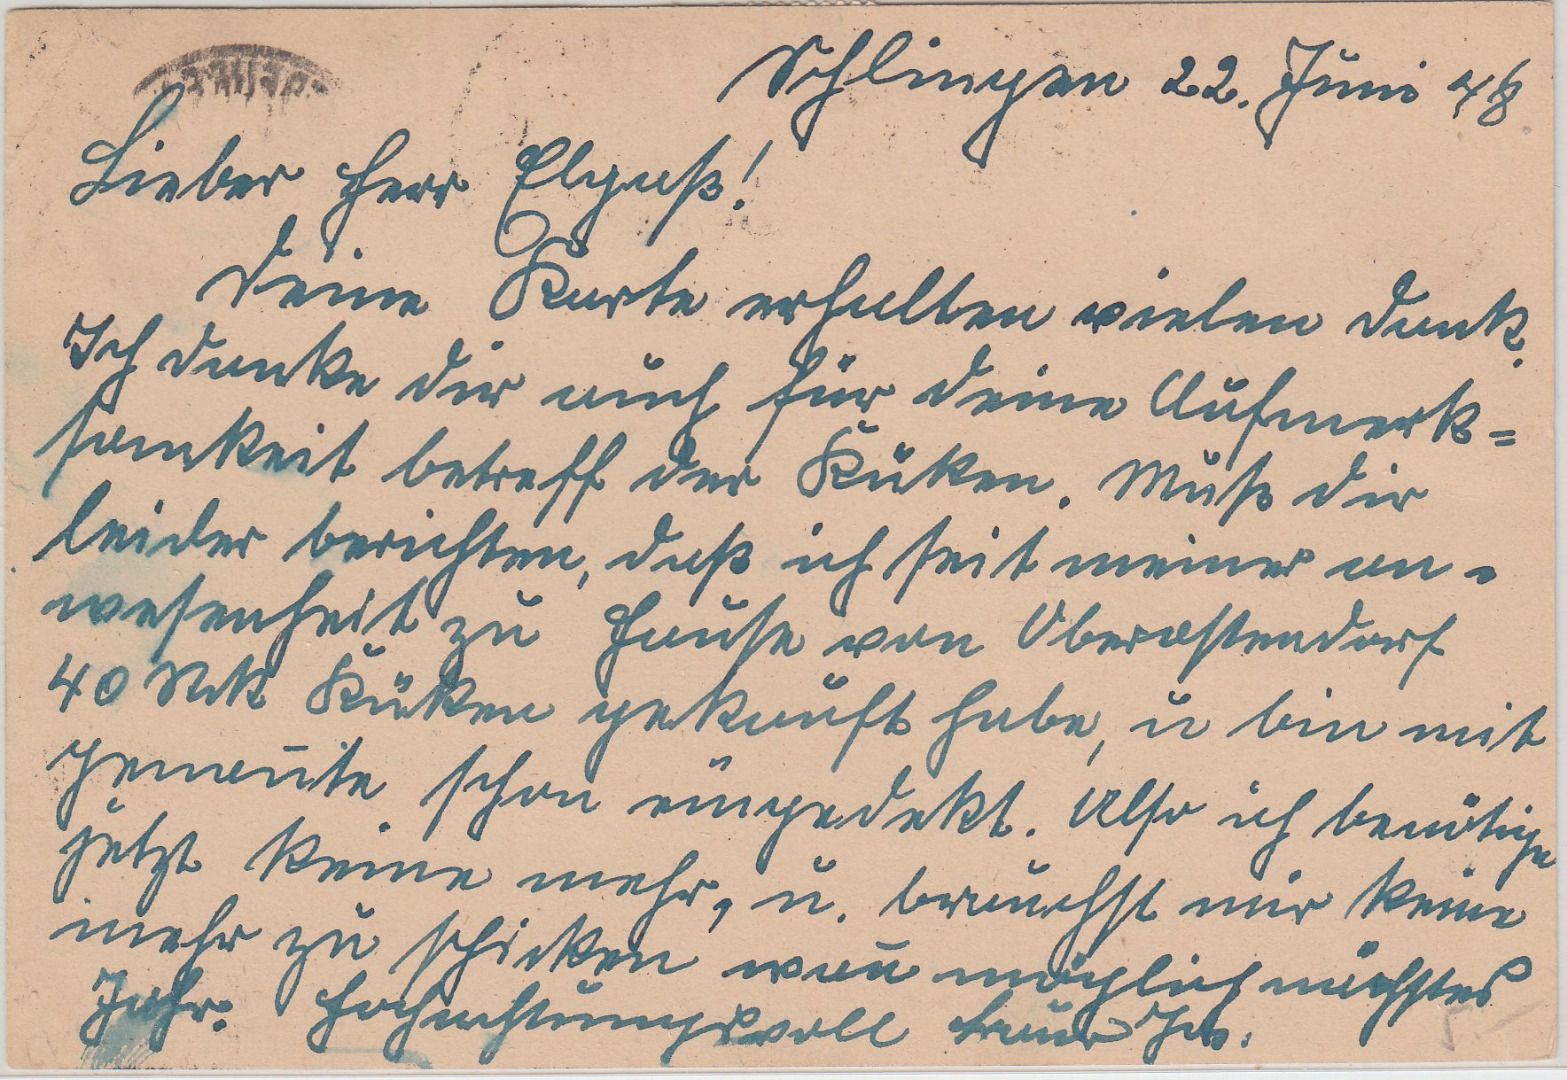 Schlingen 22. Juni 48
Lieber Herr Elgaß!
Deine Karte erhalten vielen Dank.
Ich danke dir auch für deine Aufmerk=
samkeit betreff der Küken. Muß dir
leider berichten, daß ich seit meiner an-
wesenheit zu Hause von Oberostendorf
40 Stk Küken gekauft habe, u bin mit
schon eingedekt. Also ich benötige
jetzt keine mehr, u. brauchst mir keine
mehr zu schicken wen möglich nächstes
Jahr. Hochachtungsvoll